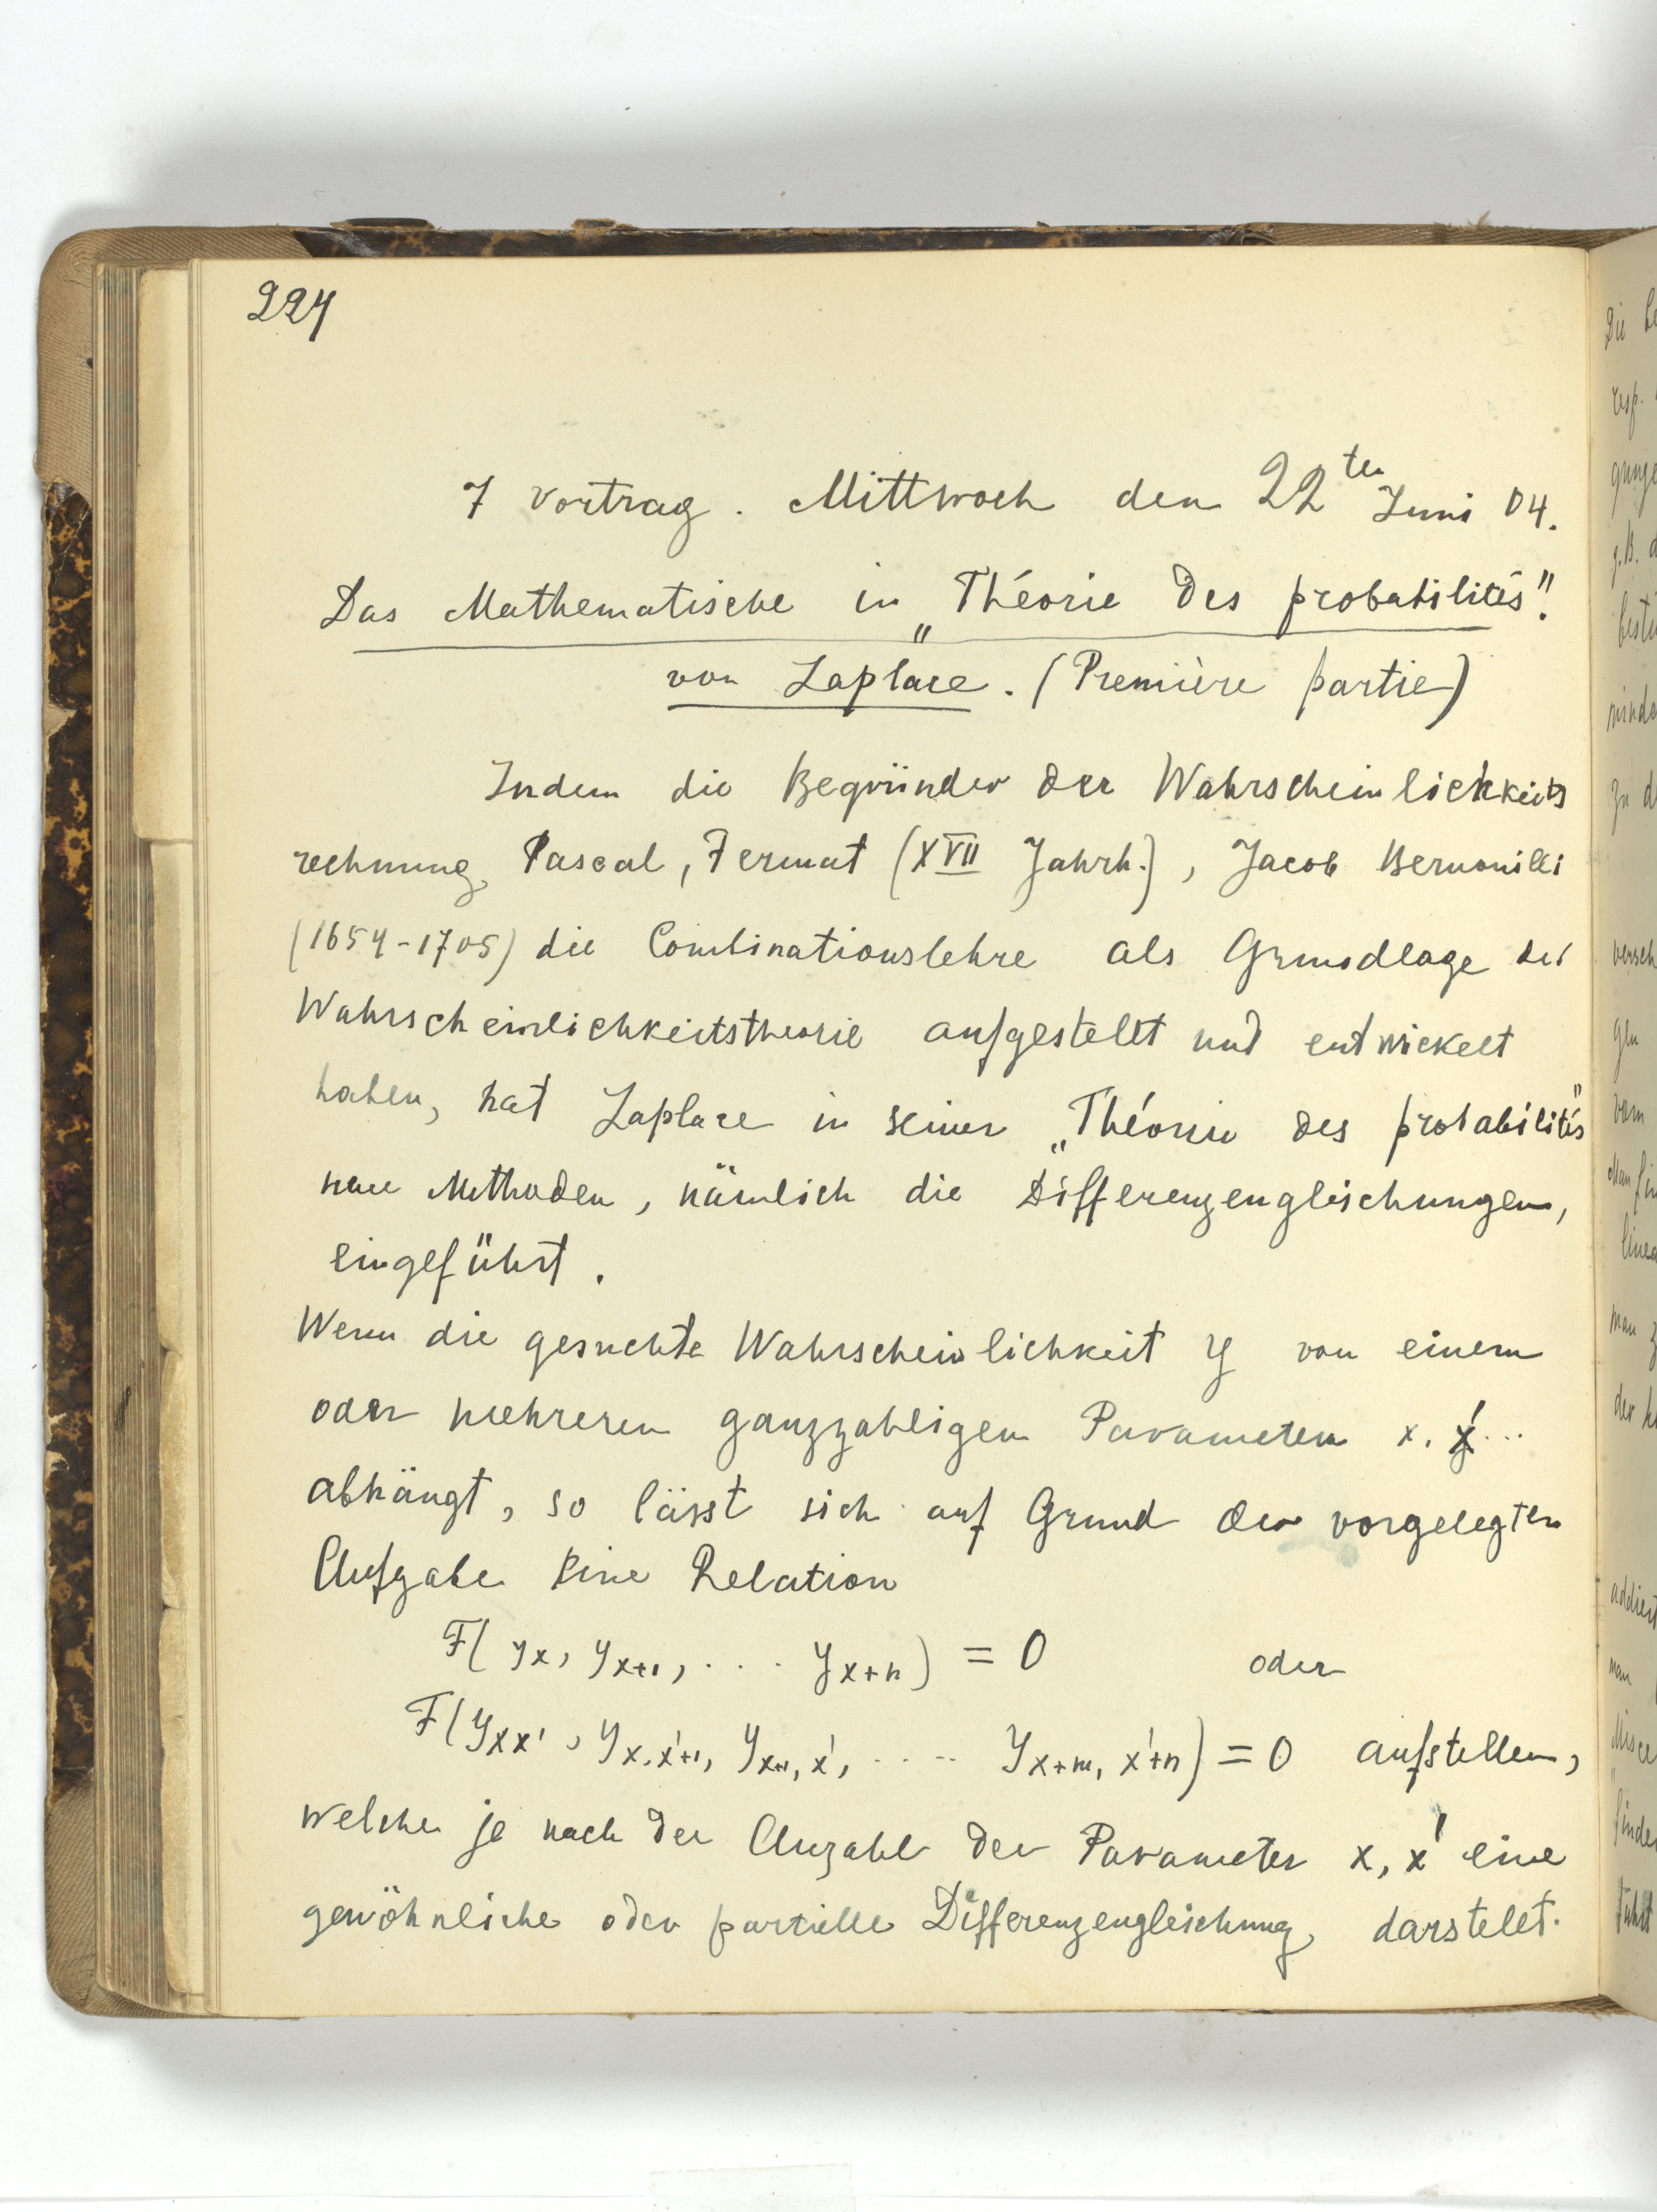 224
7 Vortrag. Mittwoch den 22ten Juni 04.
Das Mathematische in „Théorie des probabilités".
von Laplace. (Première partie)
Indem die Begründer der Wahrscheinlichkeits
rechnung Pascal, Fermat (XVII Jahrh.), Jacob Bernouilli
(1654-1705) die Combinationslehre als Grundlage der
Wahrscheinlichkeitstheorie aufgestellt und entwickelt
haben, hat Laplace in seiner „Théorie des probabilités"
neue Methoden, nämlich die Differenzengleichungen,
eingeführt.
Wenn die gesuchte Wahrscheinlichkeit y von einem
oder mehreren ganzzahligen Parametern x, x'...
abhängt, so lässt sich auf Grund der vorgelegten
Aufgabe eine Relation
F(yx, yx+1, .... yx+n) = 0 oder
F(yxx', yx,x'+1, yx+1,x', ..... yx+m, x'+n) = 0 aufstellen,
welche je nach der Anzahl der Parameter x, x' eine
gewöhnliche oder partielle Differenzengleichung darstellt.
Die
resp.
z.B.
zu
vom
man
der
man